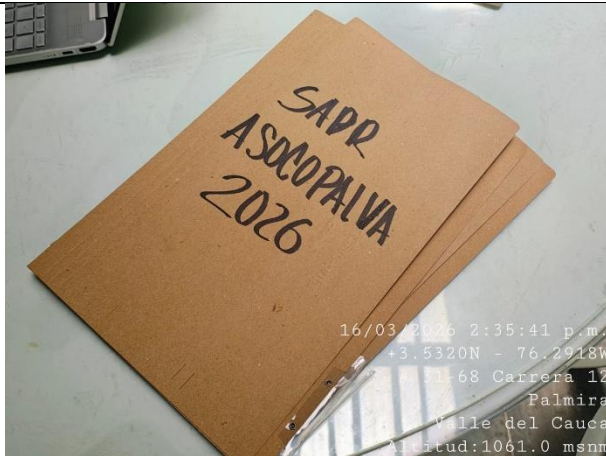 SADR
ASOCOPALVA
2026
16/03/2026 2:35:41 p.m.
+3.5320N - 76.2918W
31-68 Carrera 12
Palmira
Valle del Cauca
Altitud:1061.0 msnm